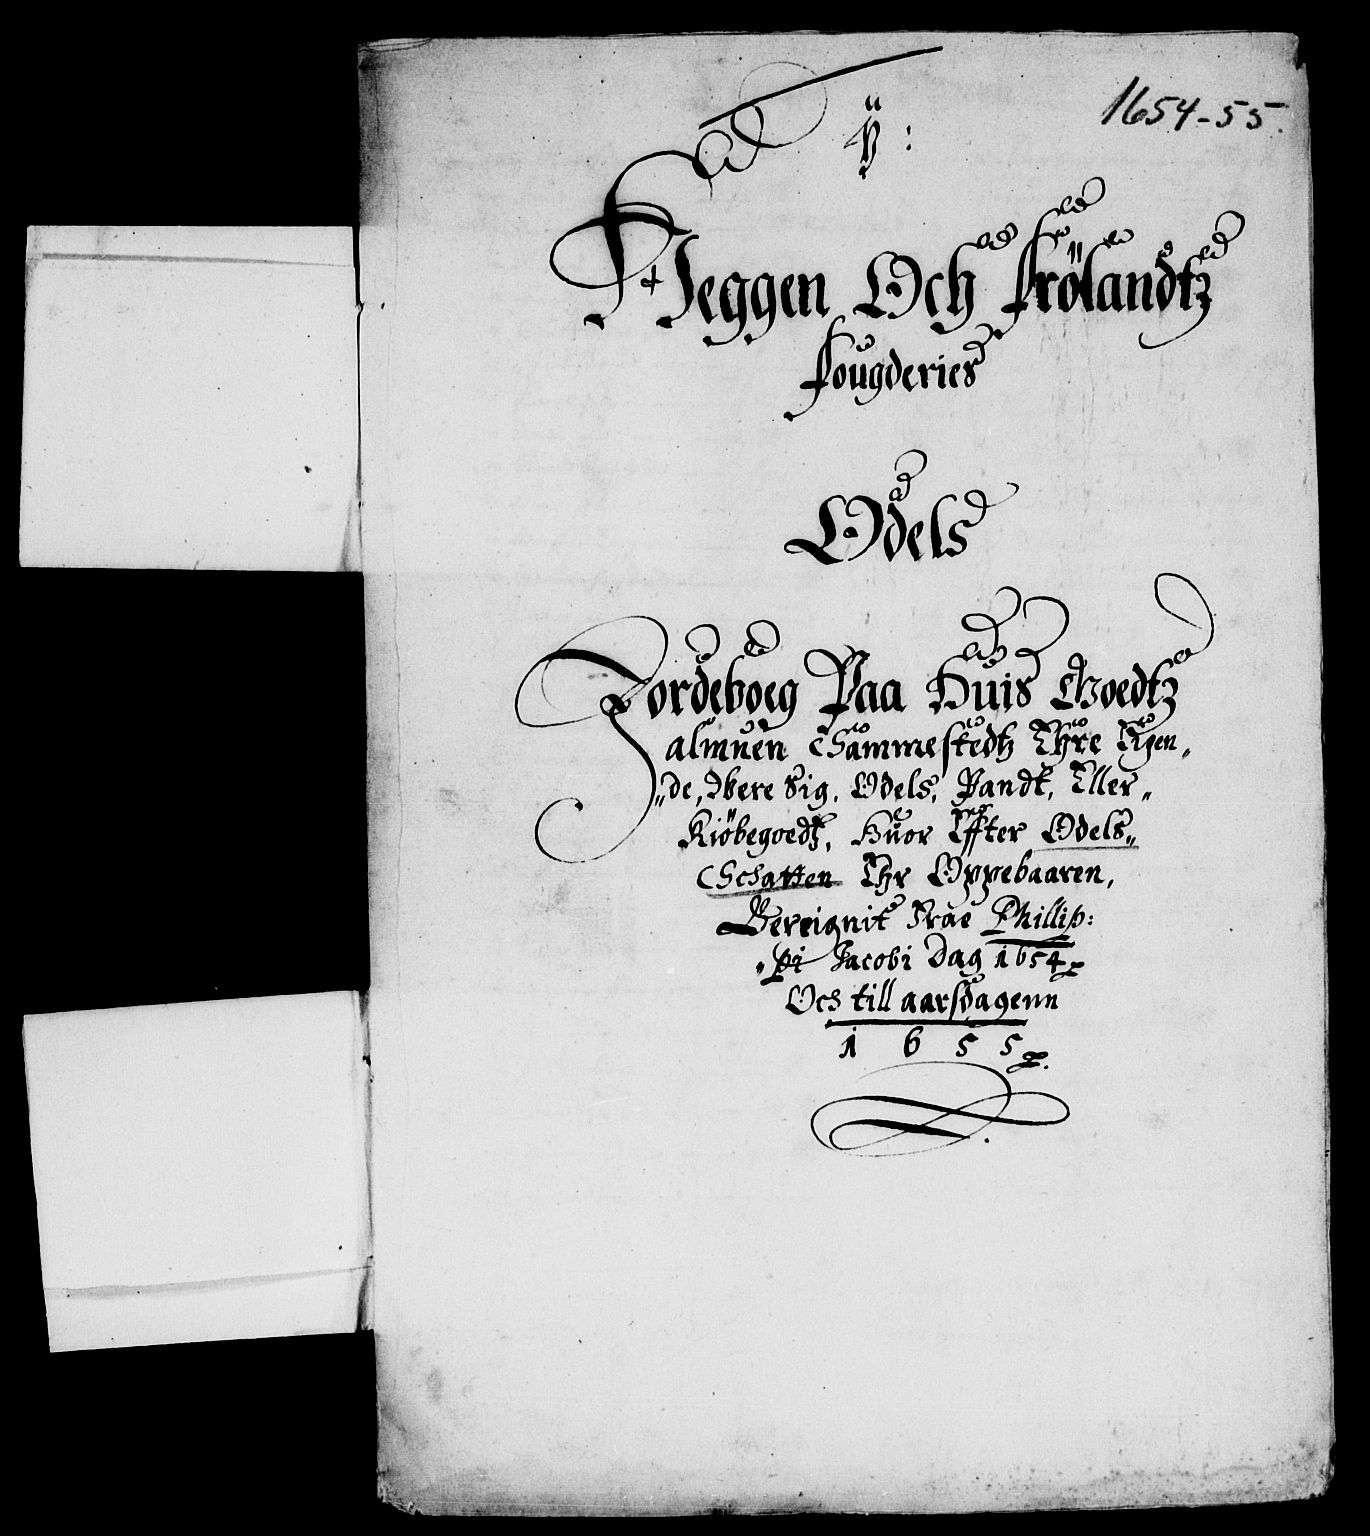 1654-55.
Heggen Och Frölandtz
fougderies
Odels
Jordeboeg Paa Huis Goedtz
almuen Sammestedtz Ehre Eigen„
„de, Were Sig, Odels, Pandt, Eller„
Kiöbegoedtz, Huor Effter Odels„
Schatten Ehr Oppebaaren,
Bereignit Frae Phillip:
„pi Jacobi Dag 1654
Och till aarsdagenn
1655